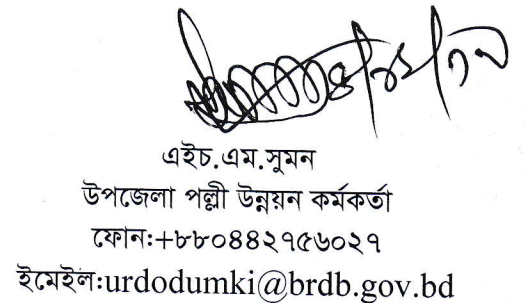 এইচ.এম.সুমন
উপজেলা পল্লী উন্নয়ন কর্মকর্তা
ফোন:+৮৮০৪৪২৭৫৬০২৭
ইমেইল:urdodumki@brdb.gov.bd